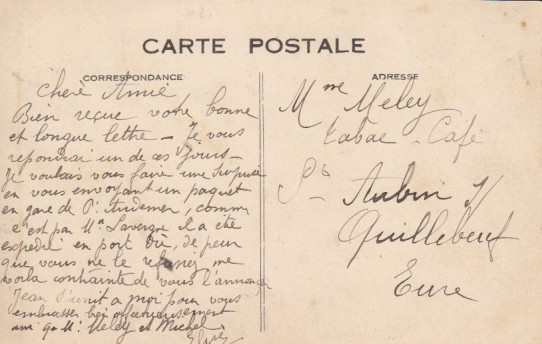 CARTE POSTALE
CORRESPONDANCE
Chère Amie
Bien reçue votre bonne
et longue lettre - Je vous
repondrai un de ces Jours -
Je voulais vous faire une surprise
en vous envoyant un paquet
en gare de Pt Audemer, comme
c'est par Mr Lavergne il a été
expedié en port dû, de peur
que vous ne le refusiez me
voila contrainte de vous l'annoncer
Jean s'unit a moi pour vous
embrasser bien affectueusement
ainsi que Mr Meley et Michel
ADRESSE
Mme Meley
Tabac - Café
St Aubin s/
Quillebeuf
Eure